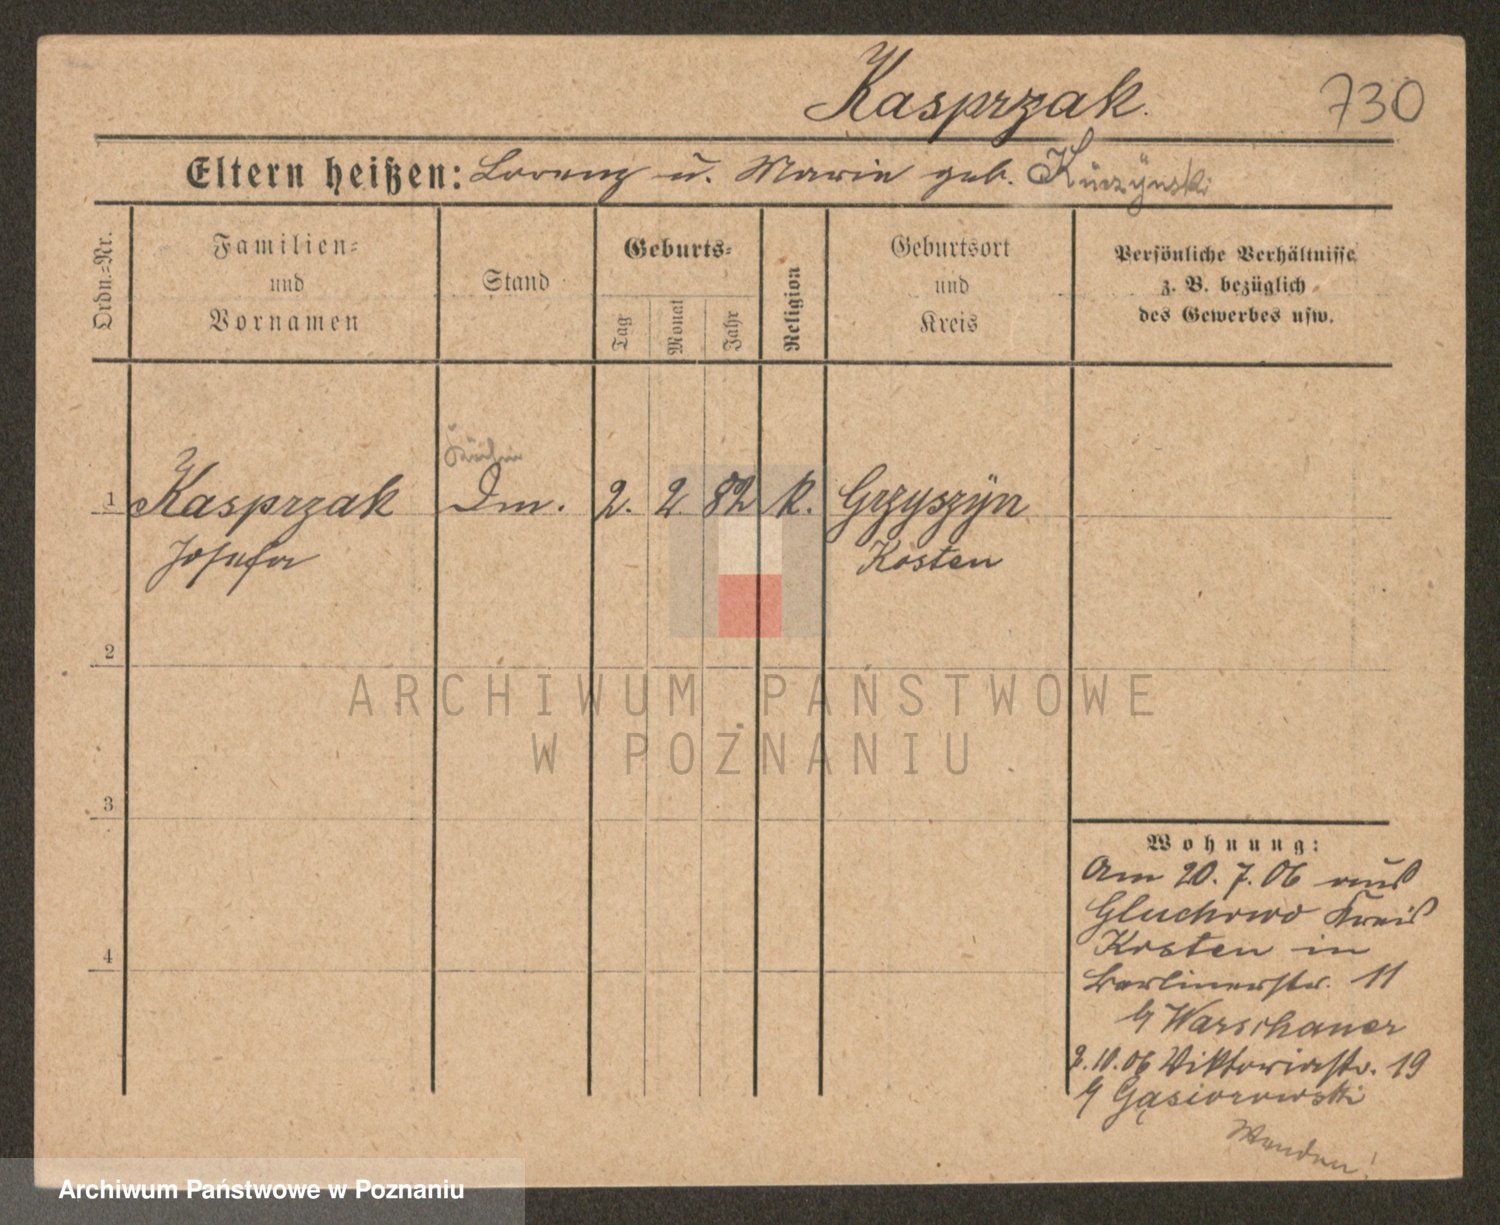 Kasprzak.
730
Eltern heißen: Lorenz u. Marie geb.
Ordn.=Nr.
Familien=
und
Vornamen
Stand
Geburts=
Tag
Monat
Jahr
Religion
Geburtsort
und
Kreis
Persönliche Verhältnisse
z. B. bezüglich
des Gewerbes usw.
Köchin
1 Kasprzak Dm. 2. 2. 82 k. Gryszyn
Josefa Kosten
2
3
4
Wohnung:
Am 20. 7. 06 aus
Gluchowo Kreis
Kosten in
Berlinerstr. 11
b/ Warschauer
10. 06 Viktoriastr. 19
b/ Gąsiorowski
Wenden!
ARCHIWUM PAŃSTWOWE
W POZNANIU
Archiwum Państwowe w Poznaniu